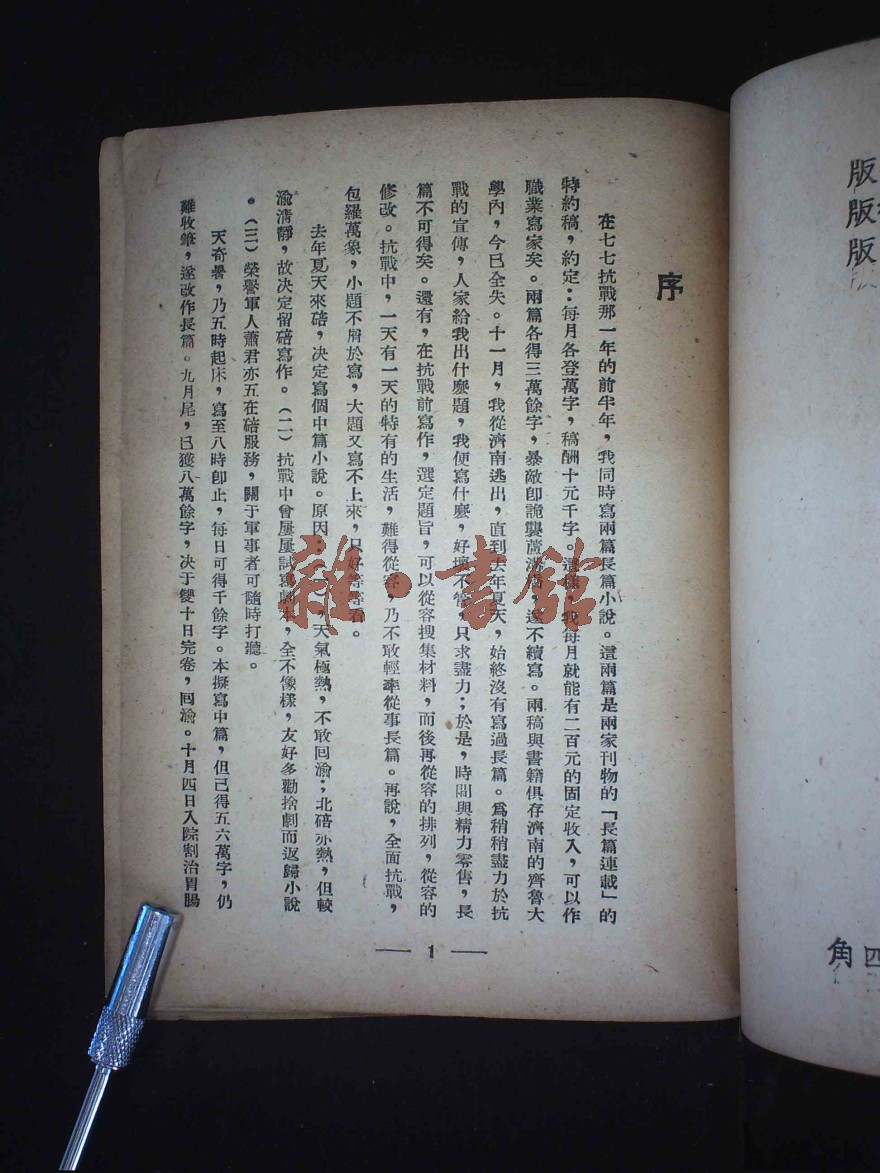 序
在七七抗戰那一年的前半年，我同時寫兩篇長篇小說。這兩篇是兩家刊物的「長篇連載」的
特約稿，約定：每月各登萬字，稿酬十元千字。這樣，我每月就能有二百元的固定收入，可以作
職業寫家矣。兩篇各得三萬餘字，暴敵卽詭襲蘆溝橋，遂不續寫。兩稿與書籍俱存濟南的齊魯大
學內，今已全失。十一月，我從濟南逃出，直到去年夏天，始終沒有寫過長篇。爲稍稍盡力於抗
戰的宣傳，人家給我出什麼題，我便寫什麼，好壞不管，只求盡力；於是，時間與精力零售，長
篇不可得矣。還有，在抗戰前寫作，選定題旨，可以從容搜集材料，而後再從容的排列，從容的
修改。抗戰中，一天有一天的特有的生活，難得從容，乃不敢輕率從事長篇。再說，全面抗戰，
包羅萬象，小題不屑於寫，大題又寫不上來，只好等等看。
去年夏天來碚，决定寫個中篇小說。原因：，天氣極熱，不敢回渝；北碚亦熱，但較
渝清靜，故决定留碚寫作。（二）抗戰中曾屢屢試寫劇本，全不像樣，友好多勸捨劇而返歸小說
。（三）榮譽軍人蕭君亦五在碚服務，關于軍事者可隨時打聽。
天奇暑，乃五時起床，寫至八時卽止，每日可得千餘字。本擬寫中篇，但已得五六萬字，仍
難收筆，遂改作長篇。九月尾，已獲八萬餘字，决于雙十日完卷，回渝。十月四日入院割治胃腸
1
版
版
版
四角
雜·書館